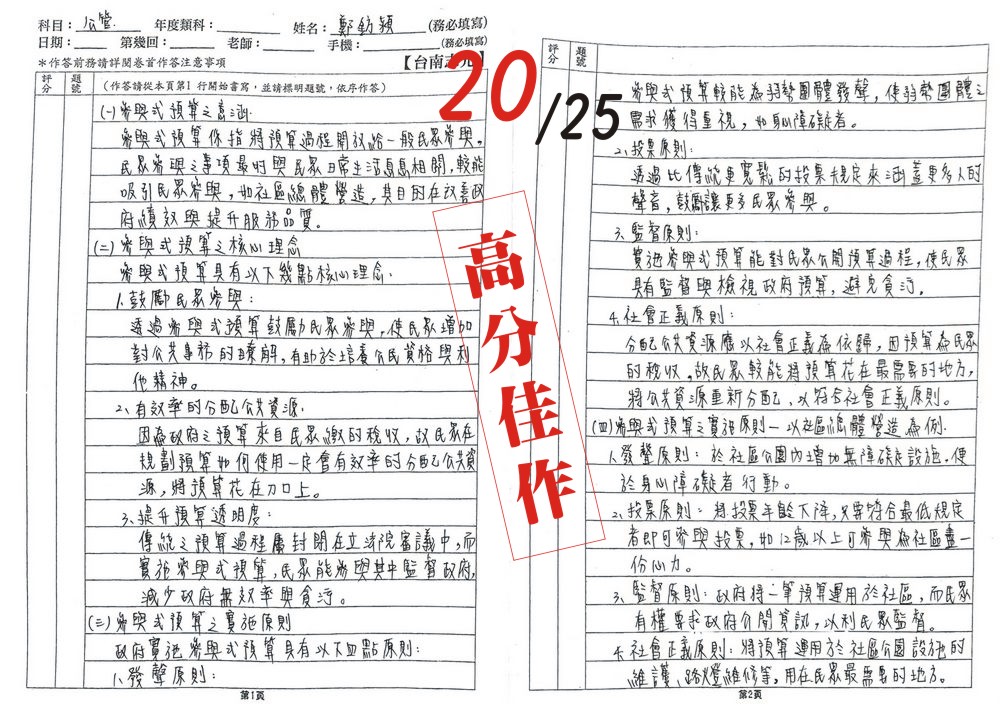 科目：公管 年度類科： 姓名：鄭鈁穎 (務必填寫)
日期： 第幾回： 老師： 手機： (務必填寫)
＊作答前務請詳閱卷首作答注意事項 【台南志光】
評分 題號 （作答請從本頁第1行開始書寫，並請標明題號，依序作答）
(一)參與式預算之意涵
參與式預算係指將預算過程開放給一般民眾參與。
民眾參與之事項最好與民眾日常生活息息相關，較能
吸引民眾參與，如社區總體營造，其目的在改善政
府績效與提升服務品質。
(二)參與式預算之核心理念
參與式預算具有以下幾點核心理念.
1.鼓勵民眾參與：
透過參與式預算鼓勵民眾參與，使民眾增加
對公共事務的瞭解，有助於培養公民資格與利
他精神。
2、有效率的分配公共資源.
因為政府之預算來自民眾繳的稅收，故民眾在
規劃預算如何使用一定會有效率的分配公共資
源，將預算花在刀口上。
3、提升預算透明度：
傳統之預算過程屬封閉在立法院審議中，而
實施參與式預算，民眾能參與其中監督政府，
減少政府無效率與貪污。
(三)參與式預算之實施原則
政府實施參與式預算具有以下四點原則：
1、發聲原則：
第1頁
20/25
高分佳作
評分 題號
參與式預算較能為弱勢團體發聲，使弱勢團體之
需求獲得重視，如身心障礙者。
2、投票原則：
透過比傳統更寬鬆的投票規定來涵蓋更多人的
聲音，鼓勵讓更多民眾參與。
3、監督原則：
實施參與式預算能對民眾公開預算過程，使民眾
具有監督與檢視政府預算，避免貪污。
4.社會正義原則：
分配公共資源應以社會正義為依歸，因預算為民眾
的稅收，故民眾較能將預算花在最需要的地方，
將公共資源重新分配，以符合社會正義原則。
(四)參與式預算之實施原則－以社區總體營造為例.
1.發聲原則：於社區公園內增加無障礙設施，便
於身心障礙者行動。
2、投票原則：將投票年齡下降，只要符合最低規定
者即可參與投票，如12歲以上可參與為社區盡一
份心力。
3、監督原則：政府將一筆預算運用於社區，而民眾
有權要求政府公開資訊，以利民眾監督。
4.社會正義原則：將預算運用於社區公園設施的
維護、路燈維修等，用在民眾最需要的地方。
第2頁